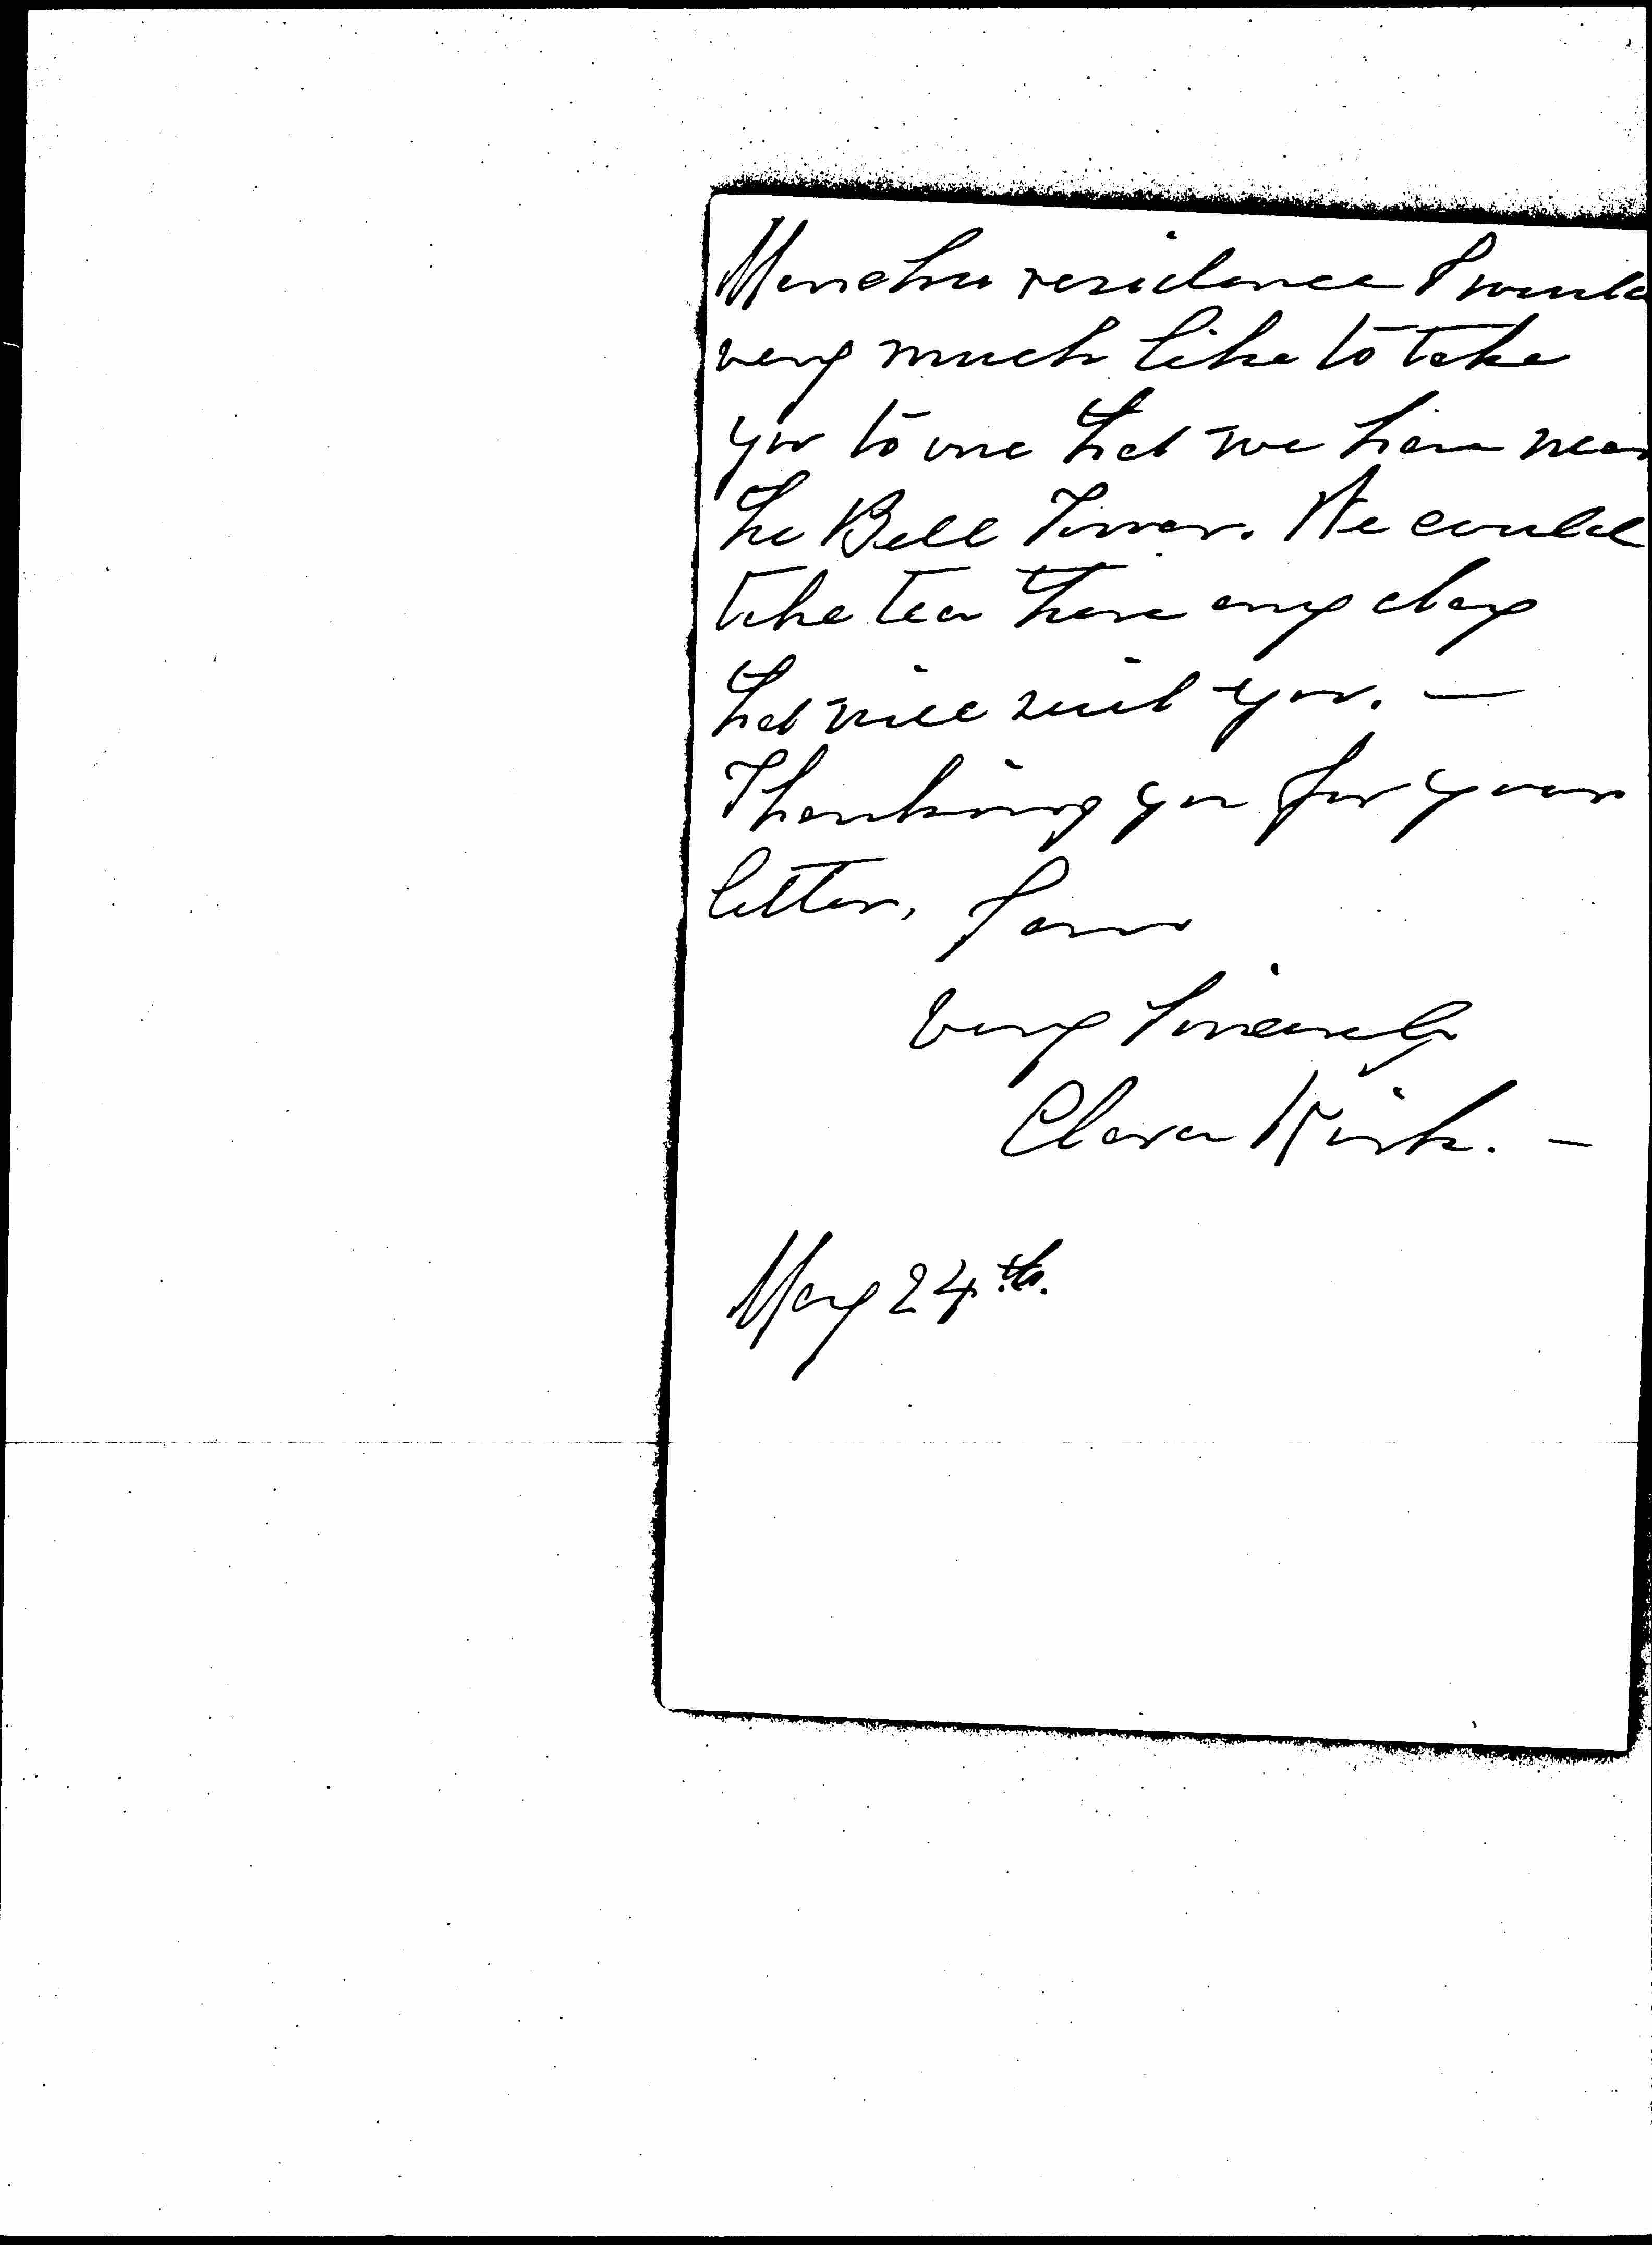 Manchu residence I would
very much like to take
you to one that we have near
the Bell Tower. We could
take tea there any day
that will suit you. —
Thanking you for your
letter, I am
Very Sincerely
Clara Kirk. —
May 24th.